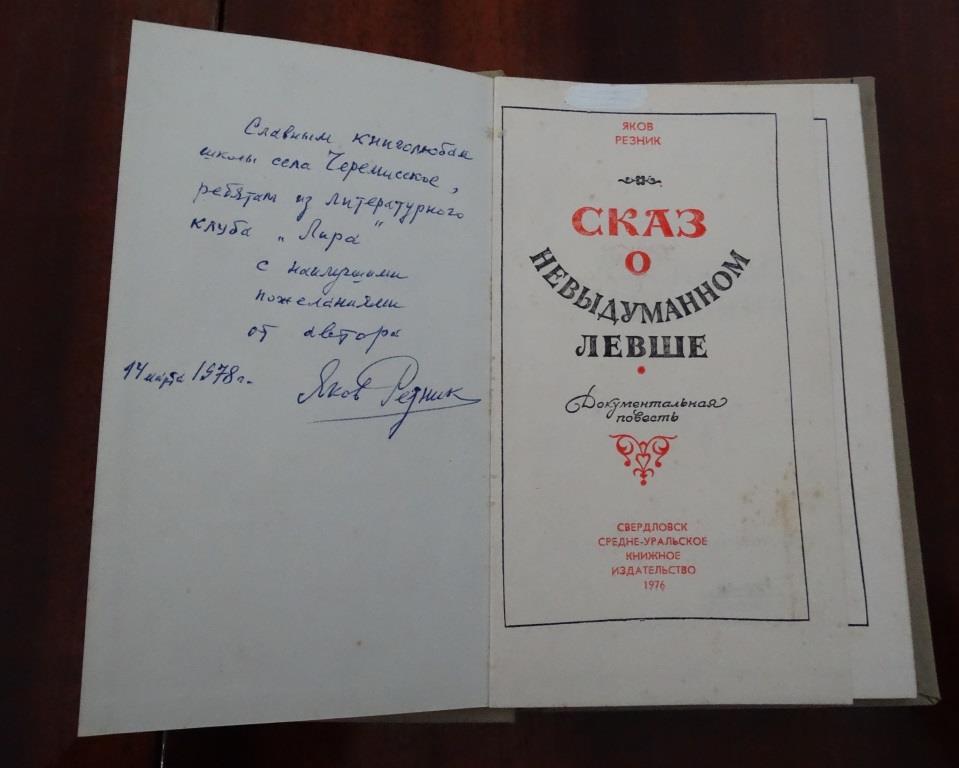 Славным книголюбам
школы села Черемисское,
ребятам из литературного
клуба „Лира"
с наилучшими
пожеланиями
от автора
14 марта 1978 г.
Яков Резник
ЯКОВ
РЕЗНИК
СКАЗ
О
НЕВЫДУМАННОМ
ЛЕВШЕ
Документальная
повесть
СВЕРДЛОВСК
СРЕДНЕ-УРАЛЬСКОЕ
КНИЖНОЕ
ИЗДАТЕЛЬСТВО
1976